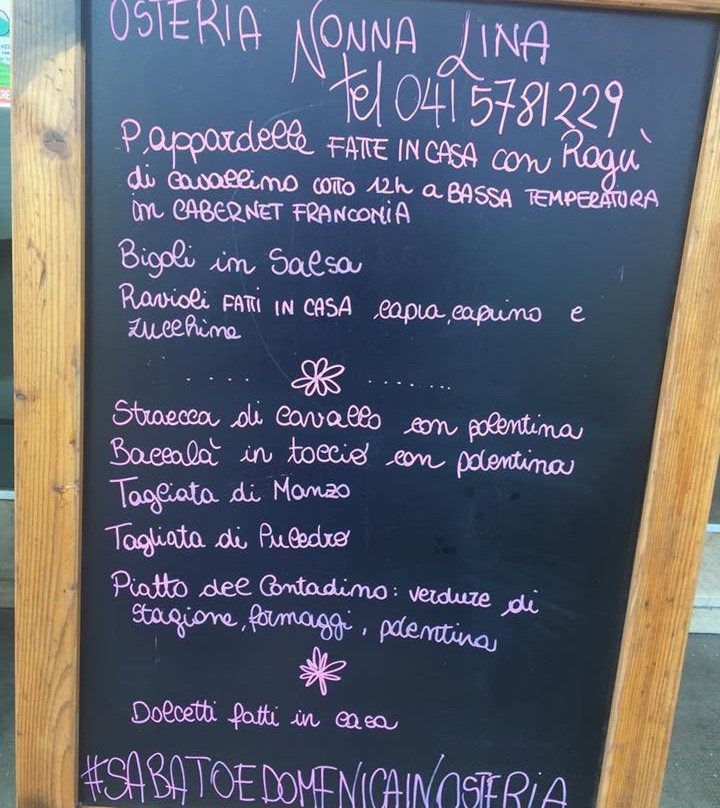 OSTERIA NONNA LINA
tel 041 5781229
Pappardelle FATTE IN CASA con Ragu'
di cavallino COTTO 12h a BASSA TEMPERATURA
in CABERNET FRANCONIA
Bigoli in Salsa
Ravioli FATTI IN CASA capra, caprino e
zucchine
Straecca di cavallo con polentina
Baccalà in toccio con polentina
Tagliata di Manzo
Tagliata di Puledro
Piatto del Contadino: verdure di
stagione, formaggi, polentina
Dolcetti fatti in casa
#SABATOEDOMENICAINOSTERIA